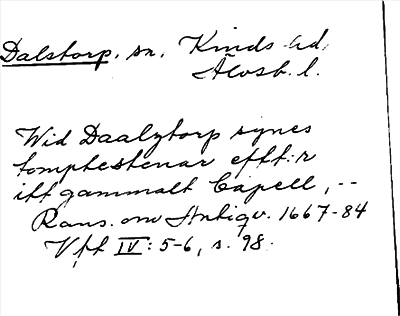 Dalstorp, sn, Kinds hd,
Älvsb. l.
Wid Daalztorp synes
tomptestenar efft:r
itt gammalt Capell, --
Rans. om Antiqv. 1667-84
Vft IV: 5-6, s. 98.